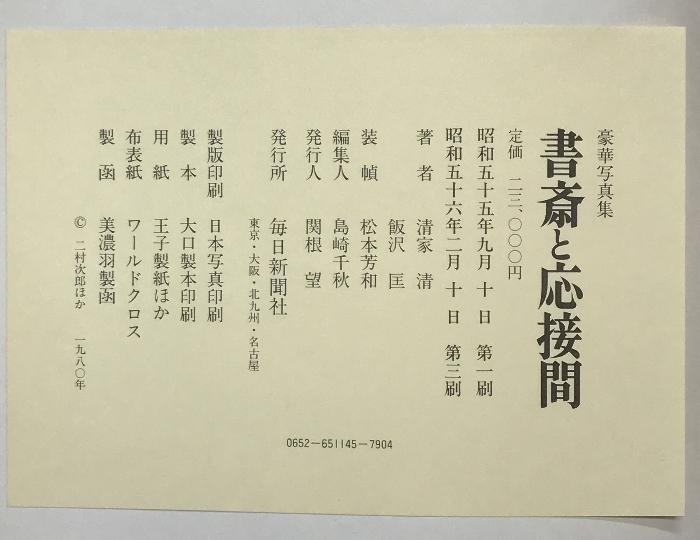 豪華写真集
書斎と応接間
定価 二三、〇〇〇円
昭和五十五年九月 十 日 第一刷
昭和五十六年二月 十 日 第三刷
著 者 清家 清
飯沢 匡
装 幀 松本芳和
編集人 島崎千秋
発行人 関根 望
発行所 毎日新聞社
東京・大阪・北九州・名古屋
製版印刷 日本写真印刷
製 本 大口製本印刷
用 紙 王子製紙ほか
布表紙 ワールドクロス
製 函 美濃羽製函
© 二村次郎ほか 一九八〇年
0652—651145—7904